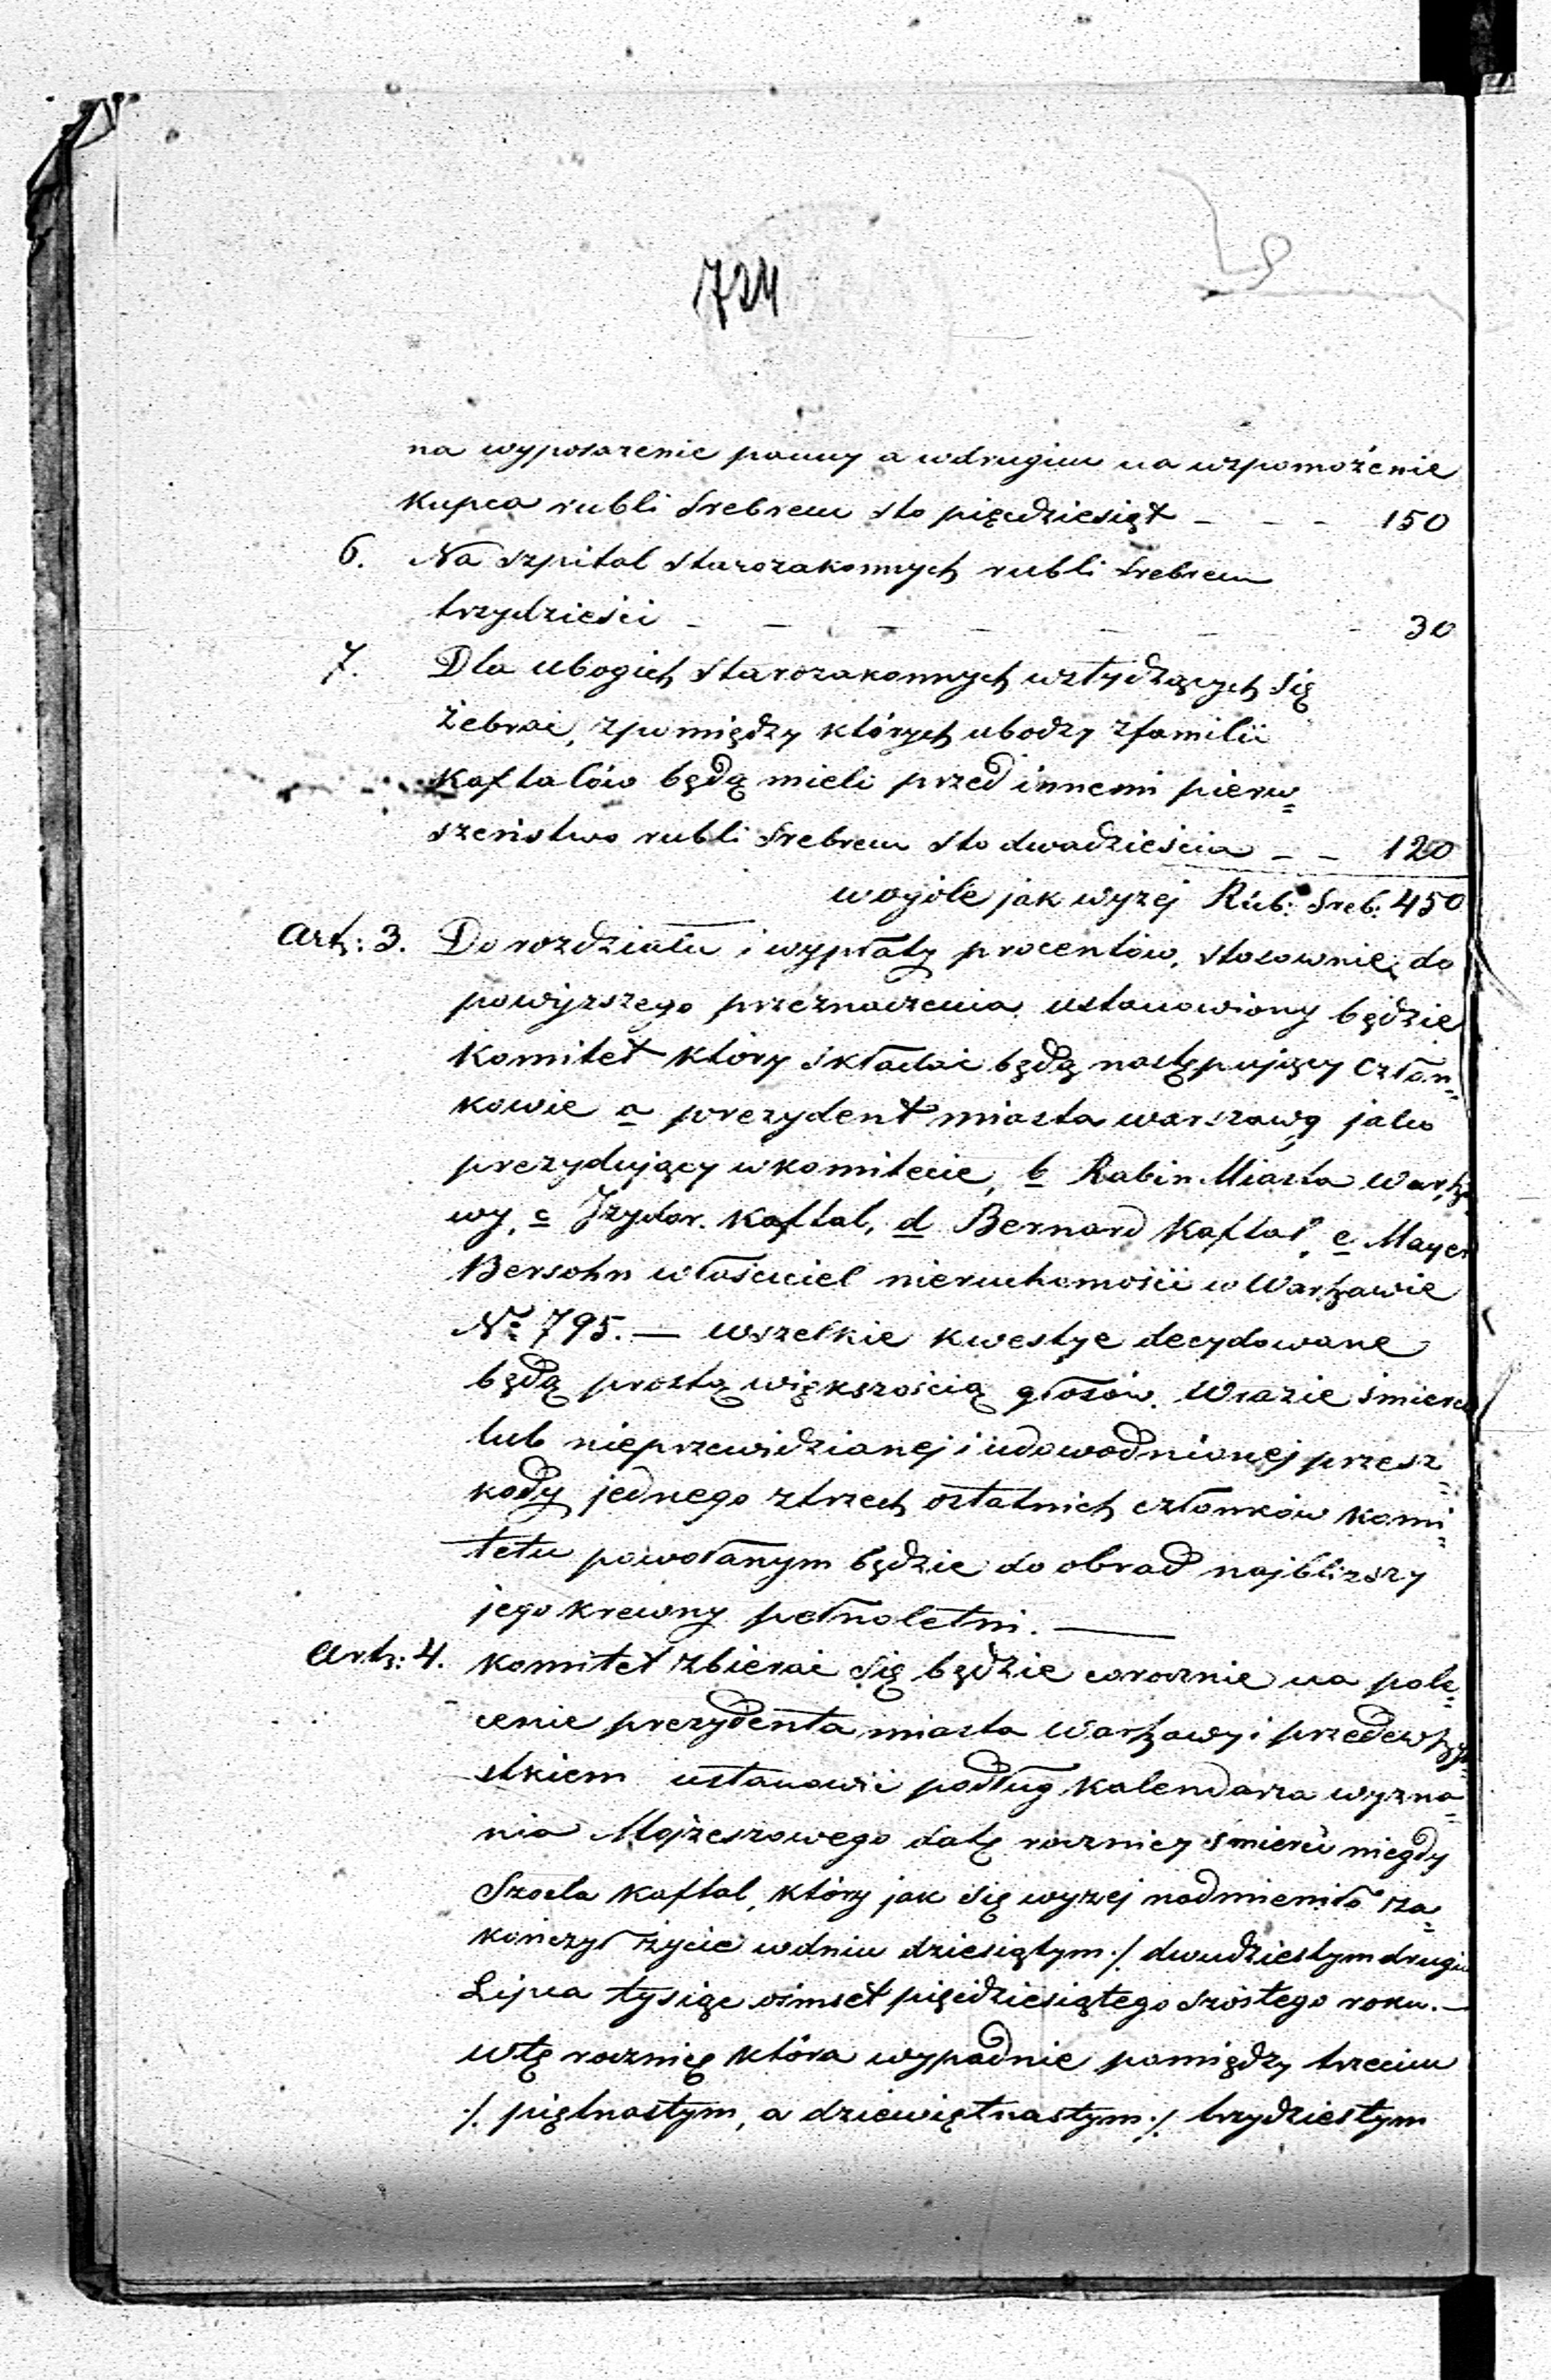 724
na wyposarzenie panny a wdrugim na wzpomożenie
kupca rubli Srebrem sto pięcdziesiąt - - - 150
6. Na szpital starozakonnych rubli Srebrem
trzydzieści - - - - - - - 30
7. Dla ubogich starozakonnych wstydzących się
żebrać, zpomiędzy których ubodzy zfamilii
Kaftalów będą mieli przed innemi pierw=
szeństwo rubli Srebrem sto dwadzieścia - - 120
wogóle jak wyzej Rub: Sreb: 450
Art: 3. Do rozdziału i wypłaty procentów, stosownie do
powyższego przeznaczenia ustanowiony będzie
Komitet który składać będą następujący człon=
kowie a prezydent miasta warszawy jako
prezydujący wkomitecie, b Rabin Miasta Warsza
wy, c Izydor Kaftal, d Bernard Kaftal, e Mayer
Bersohn właściciel nieruchomości w Warszawie
No 795. — wszelkie kwestye decydowane
będą prostą większością głosów. Wrazie śmierci
lub nieprzewidzianej i udowodnionej przesz=
kody jednego ztrzech ostatnich członków komi=
tetu powołanym będzie do obrad najbliższy
jego krewny pełnoletni. —
Art: 4. Komitet zbierać się będzie corocznie na pole=
cenie prezydenta miasta Warszawy i przedewszy=
stkiem ustanowi podług kalendarza wyzna=
nia Mojżeszowego datę rocznicy śmierci niegdy
Szoela Kaftal, który jak się wyzej nadmieniło za=
kończył życie wdniu dziesiątym ./. dwudziestym drugim
Lipca tysiąc ośmset pięćdziesiątego szóstego roku. —
wtę rocznicę która wypadnie pomiędzy trzecim
./. piętnastym, a dziewiętnastym ./. trzydziestym